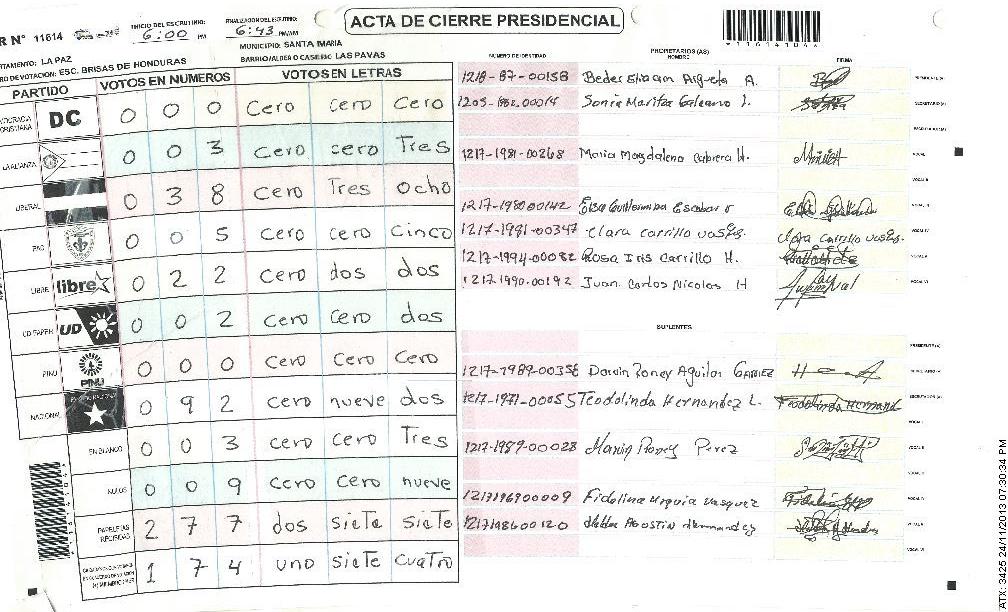 ACTA DE CIERRE PRESIDENCIAL
R N° 11614
INICIO DEL ESCRUTINIO: 6:00 PM
FINALIZACION DEL ESCRUTINIO: 6:43 PM/AM
MUNICIPIO: SANTA MARIA
TAMENTO: LA PAZ
BARRIO/ALDEA O CASERIO: LAS PAVAS
RO DE VOTACION: ESC. BRISAS DE HONDURAS
PARTIDO VOTOS EN NUMEROS VOTOS EN LETRAS
CRISTIANA DC 0 0 0 Cero cero Cero
LA ALIANZA 0 0 3 cero cero Tres
LIBERAL 0 3 8 cero Tres ocho
PAC 0 0 5 cero cero cinco
LIBRE libre 0 2 2 cero dos dos
UD FAPER UD 0 0 2 cero cero dos
PINU PINU 0 0 0 cero cero cero
NACIONAL 0 9 2 cero nueve dos
EN BLANCO 0 0 3 cero cero Tres
NULOS 0 0 9 cero cero nueve
PAPELETAS RECIBIDAS 2 7 7 dos siete siete
1 7 4 uno siete cuatro
NUMERO DE IDENTIDAD PROPIETARIOS (AS) NOMBRE FIRMA
1218-87-00158 A. PRESIDENTE (A)
Sonia Maritza Galeano SECRETARIO (A)
ESCRUTADOR (A)
1217-1981-00268 Maria Magdalena Cabrera H. VOCAL I
VOCAL II
1217-1980-00142 Elsa Escobar VOCAL III
1217-1981-00347 clara carrillo clara carrillo VOCAL IV
1217-1994-00082 Rosa Iris Carrillo H. VOCAL V
1217-1990-00192 Juan Carlos Nicolas H VOCAL VI
SUPLENTES
PRESIDENTE (A)
1217-1989-00356 Darwin Roney Aguilar SECRETARIO (A)
1217-1971-00055 Teodolinda Hernandez L. Teodolinda Hernand ESCRUTADOR (A)
VOCAL I
1217-1989-00028 Perez VOCAL II
VOCAL III
1217196700009 Fidelina Urquia Vasquez VOCAL IV
1217198600120 Agostin Hernandez VOCAL V
VOCAL VI
ATX: 3425 24/11/2013 07:30:34 PM